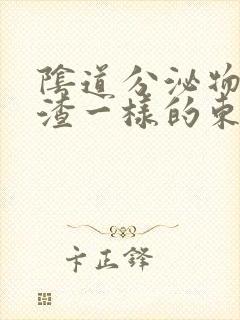 陰道分泌物
渣一樣的東
卞正鋒